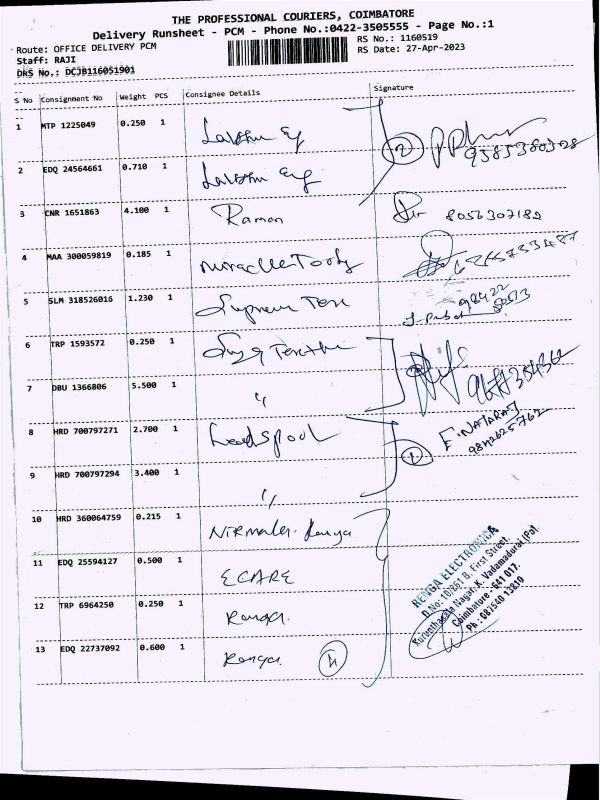 THE PROFESSIONAL COURIERS, COIMBATORE
Delivery Runsheet - PCM - Phone No.:0422-3505555 - Page No.:1
Route: OFFICE DELIVERY PCM
RS No.: 1160519
Staff: RAJI
RS Date: 27-Apr-2023
DRS No.: DCJB116051901
S No Consignment No Weight PCS Consignee Details Signature
1 MTP 1225049 0.250 1
2 9585380328
2 EDQ 24564661 0.710 1
3 CNR 1651863 4.100 1 Raman 8056307182
4 MAA 300059819 0.185 1
5 SLM 318526016 1.230 1
98422
80513
6 TRP 1593572 0.250 1
7 DBU 1366806 5.500 1 "
8 HRD 700797271 2.700 1 Leadspool
1
9842625762
9 HRD 700797294 3.400 1 "
10 HRD 360064759 0.215 1
11 EDQ 25594127 0.500 1 ECARE
12 TRP 6964250 0.250 1 Renga
13 EDQ 22737092 0.600 1 Renga
RENGA ELECTRONICA
D.No: 10/861 B, First Street,
Nagar, K. Vadamadurai (Po),
Coimbatore - 641 017.
Ph : 087540 13810